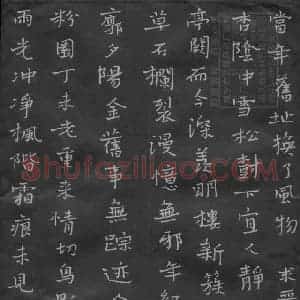 當年舊址換了風物
杏陰中雪松動下宜人靜
亭闊而今深羨明樓新
草石欄裂漫憶無邪年
廓夕陽金舊事無蹤迹
粉園丁未老重来情切鳥
雨光冲淨楓階霜痕未見
Shufaziliao.com